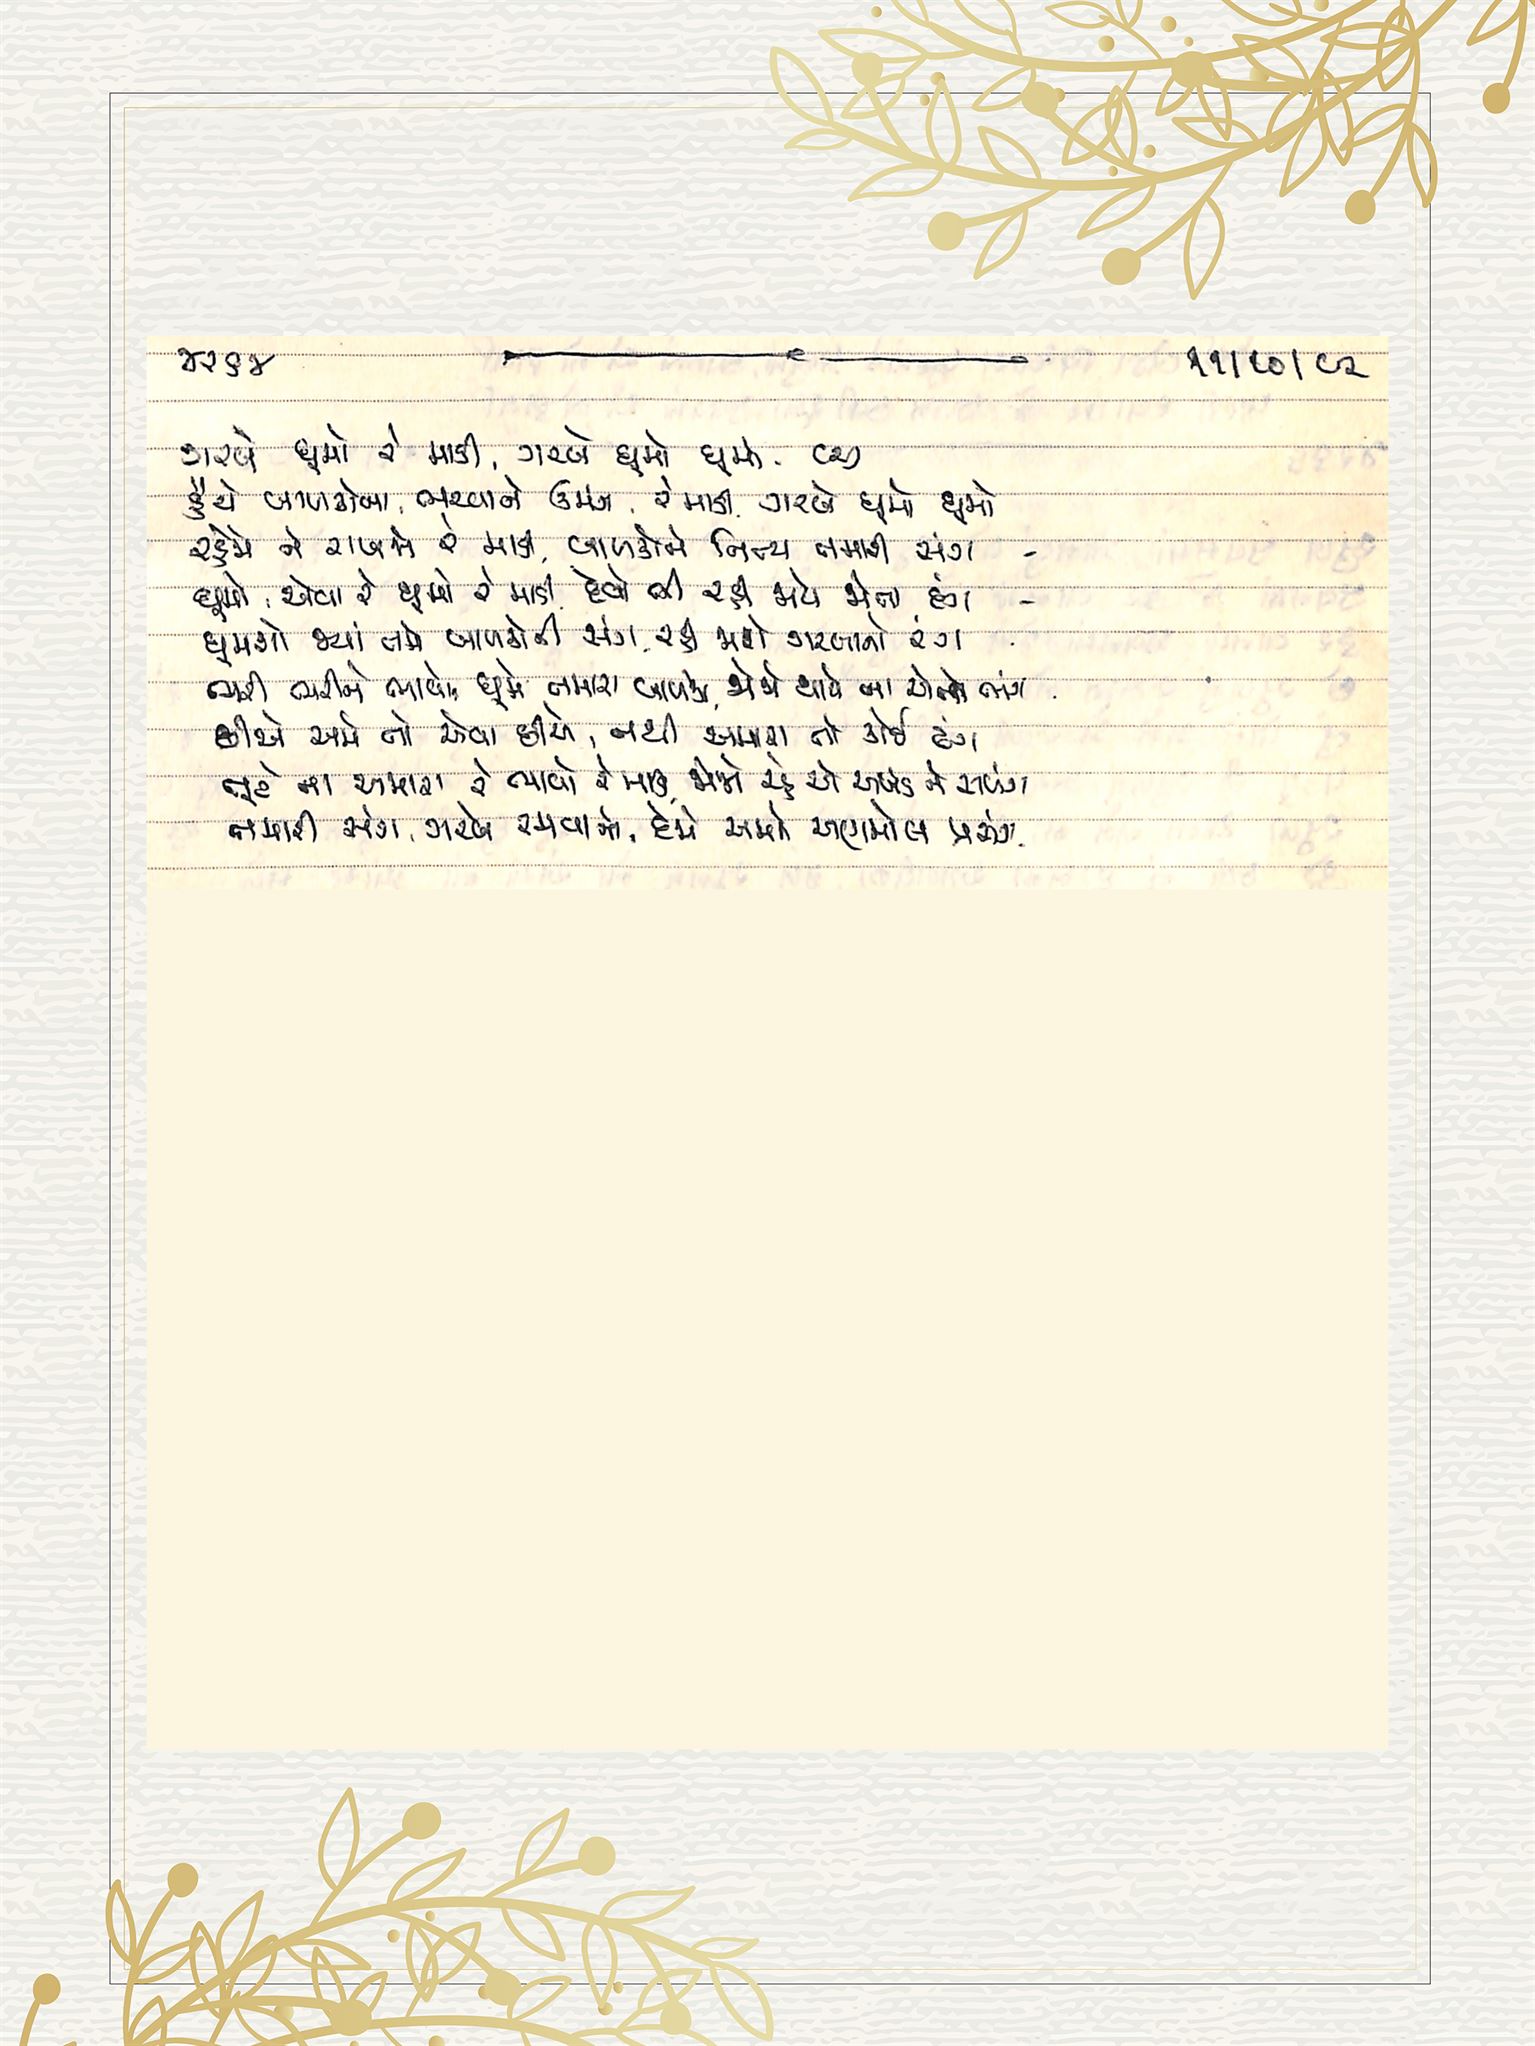 ૪૨૬૪ ૧૧/૧૦/૯૨
ગરબે ઘૂમો રે માડી, ગરબે ઘૂમો ઘૂમો.
હૈયે બાળકોના, ભરવાને ઉમંગ, રે માડી ગરબે ઘૂમો ઘૂમો
રહેજે ને રાખજે રે માડી, બાળકોને નિત્ય તમારી સંગ -
ઘૂમો, એવા રે ઘૂમો રે માડી, દેવો બી રહી જાયે જોતા દંગ -
ઘૂમશો જ્યાં તમે બાળકોની સંગ, રહી જાશે ગરબાનો રંગ
ભરી ભરીને ભાવો, ઘૂમે તમારા બાળકો, જોજે થાયે ના એનો ભંગ.
છીએ અમે તો એવા છીએ, નથી અમારા તો કોઈ ઢંગ
તૂટે ના અમારા રે ભાવો રે માડી, જોજો રહે એ અખંડ ને સળંગ
તમારી સંગ, ગરબે રમવાનો, દેજે અમને અણમોલ પ્રસંગ.